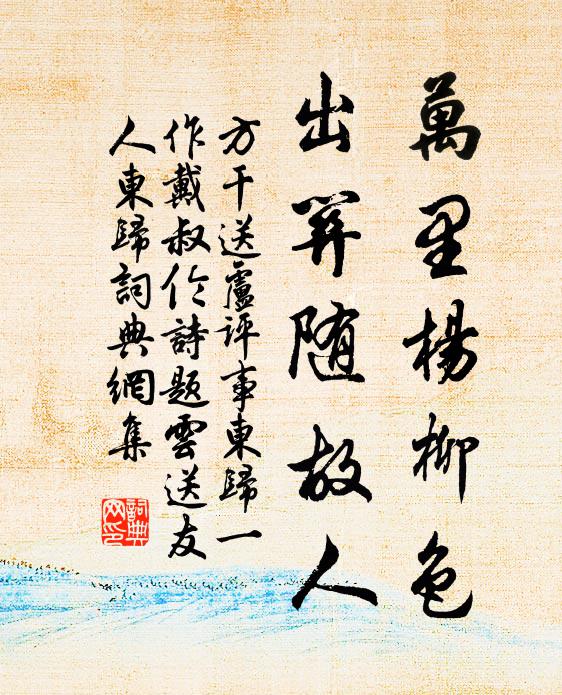 萬里楊柳色
出關随故人
方干送盧評事東歸一
作戴叔伦詩題雲送友
人東歸詞典網集
詞典
网印